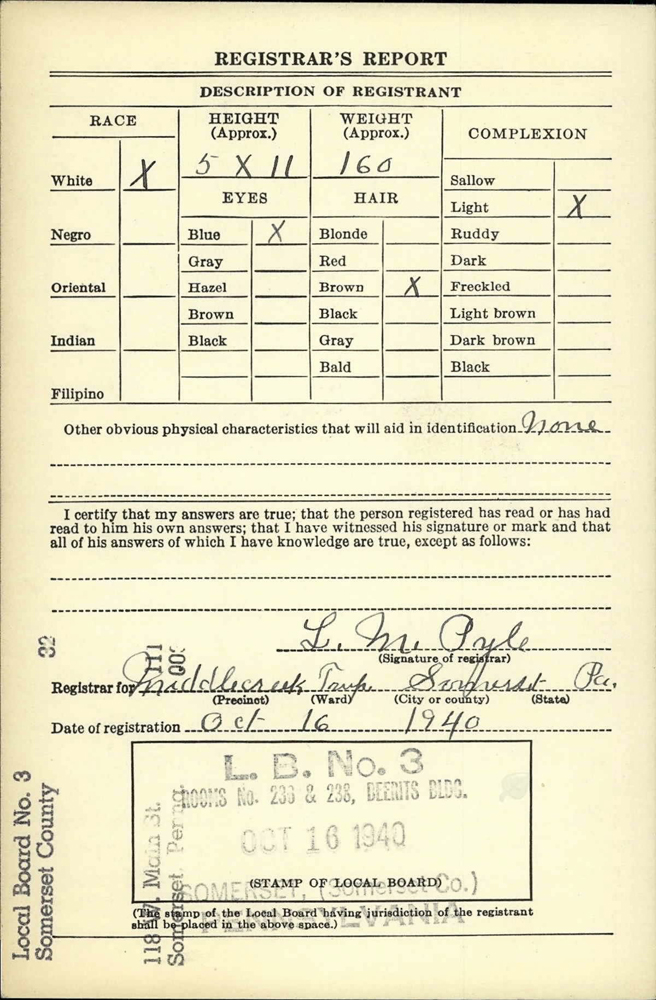 REGISTRAR'S REPORT
DESCRIPTION OF REGISTRANT
RACE HEIGHT (Approx.) WEIGHT (Approx.) COMPLEXION
5 X 11 160
White X
EYES HAIR
Sallow
Light X
Negro Blue X Blonde Ruddy
Gray Red Dark
Oriental Hazel Brown X Freckled
Brown Black Light brown
Indian Black Gray Dark brown
Bald Black
Filipino
Other obvious physical characteristics that will aid in identification None
I certify that my answers are true; that the person registered has read or has had
read to him his own answers; that I have witnessed his signature or mark and that
all of his answers of which I have knowledge are true, except as follows:
L. M. Pyle
(Signature of registrar)
Registrar for Middlecreek Twp. Somerset Pa.
(Precinct) (Ward) (City or county) (State)
Date of registration Oct 16 1940
L. B. No. 3
ROOMS No. 236 & 238, BEERITS BLDG.
OCT 16 1940
(STAMP OF LOCAL BOARD)
SOMERSET, (Somerset Co.)
PENNSYLVANIA
(The stamp of the Local Board having jurisdiction of the registrant
shall be placed in the above space.)
Local Board No. 3 32
Somerset County 111
118 W. Main St.
Somerset, Penna.